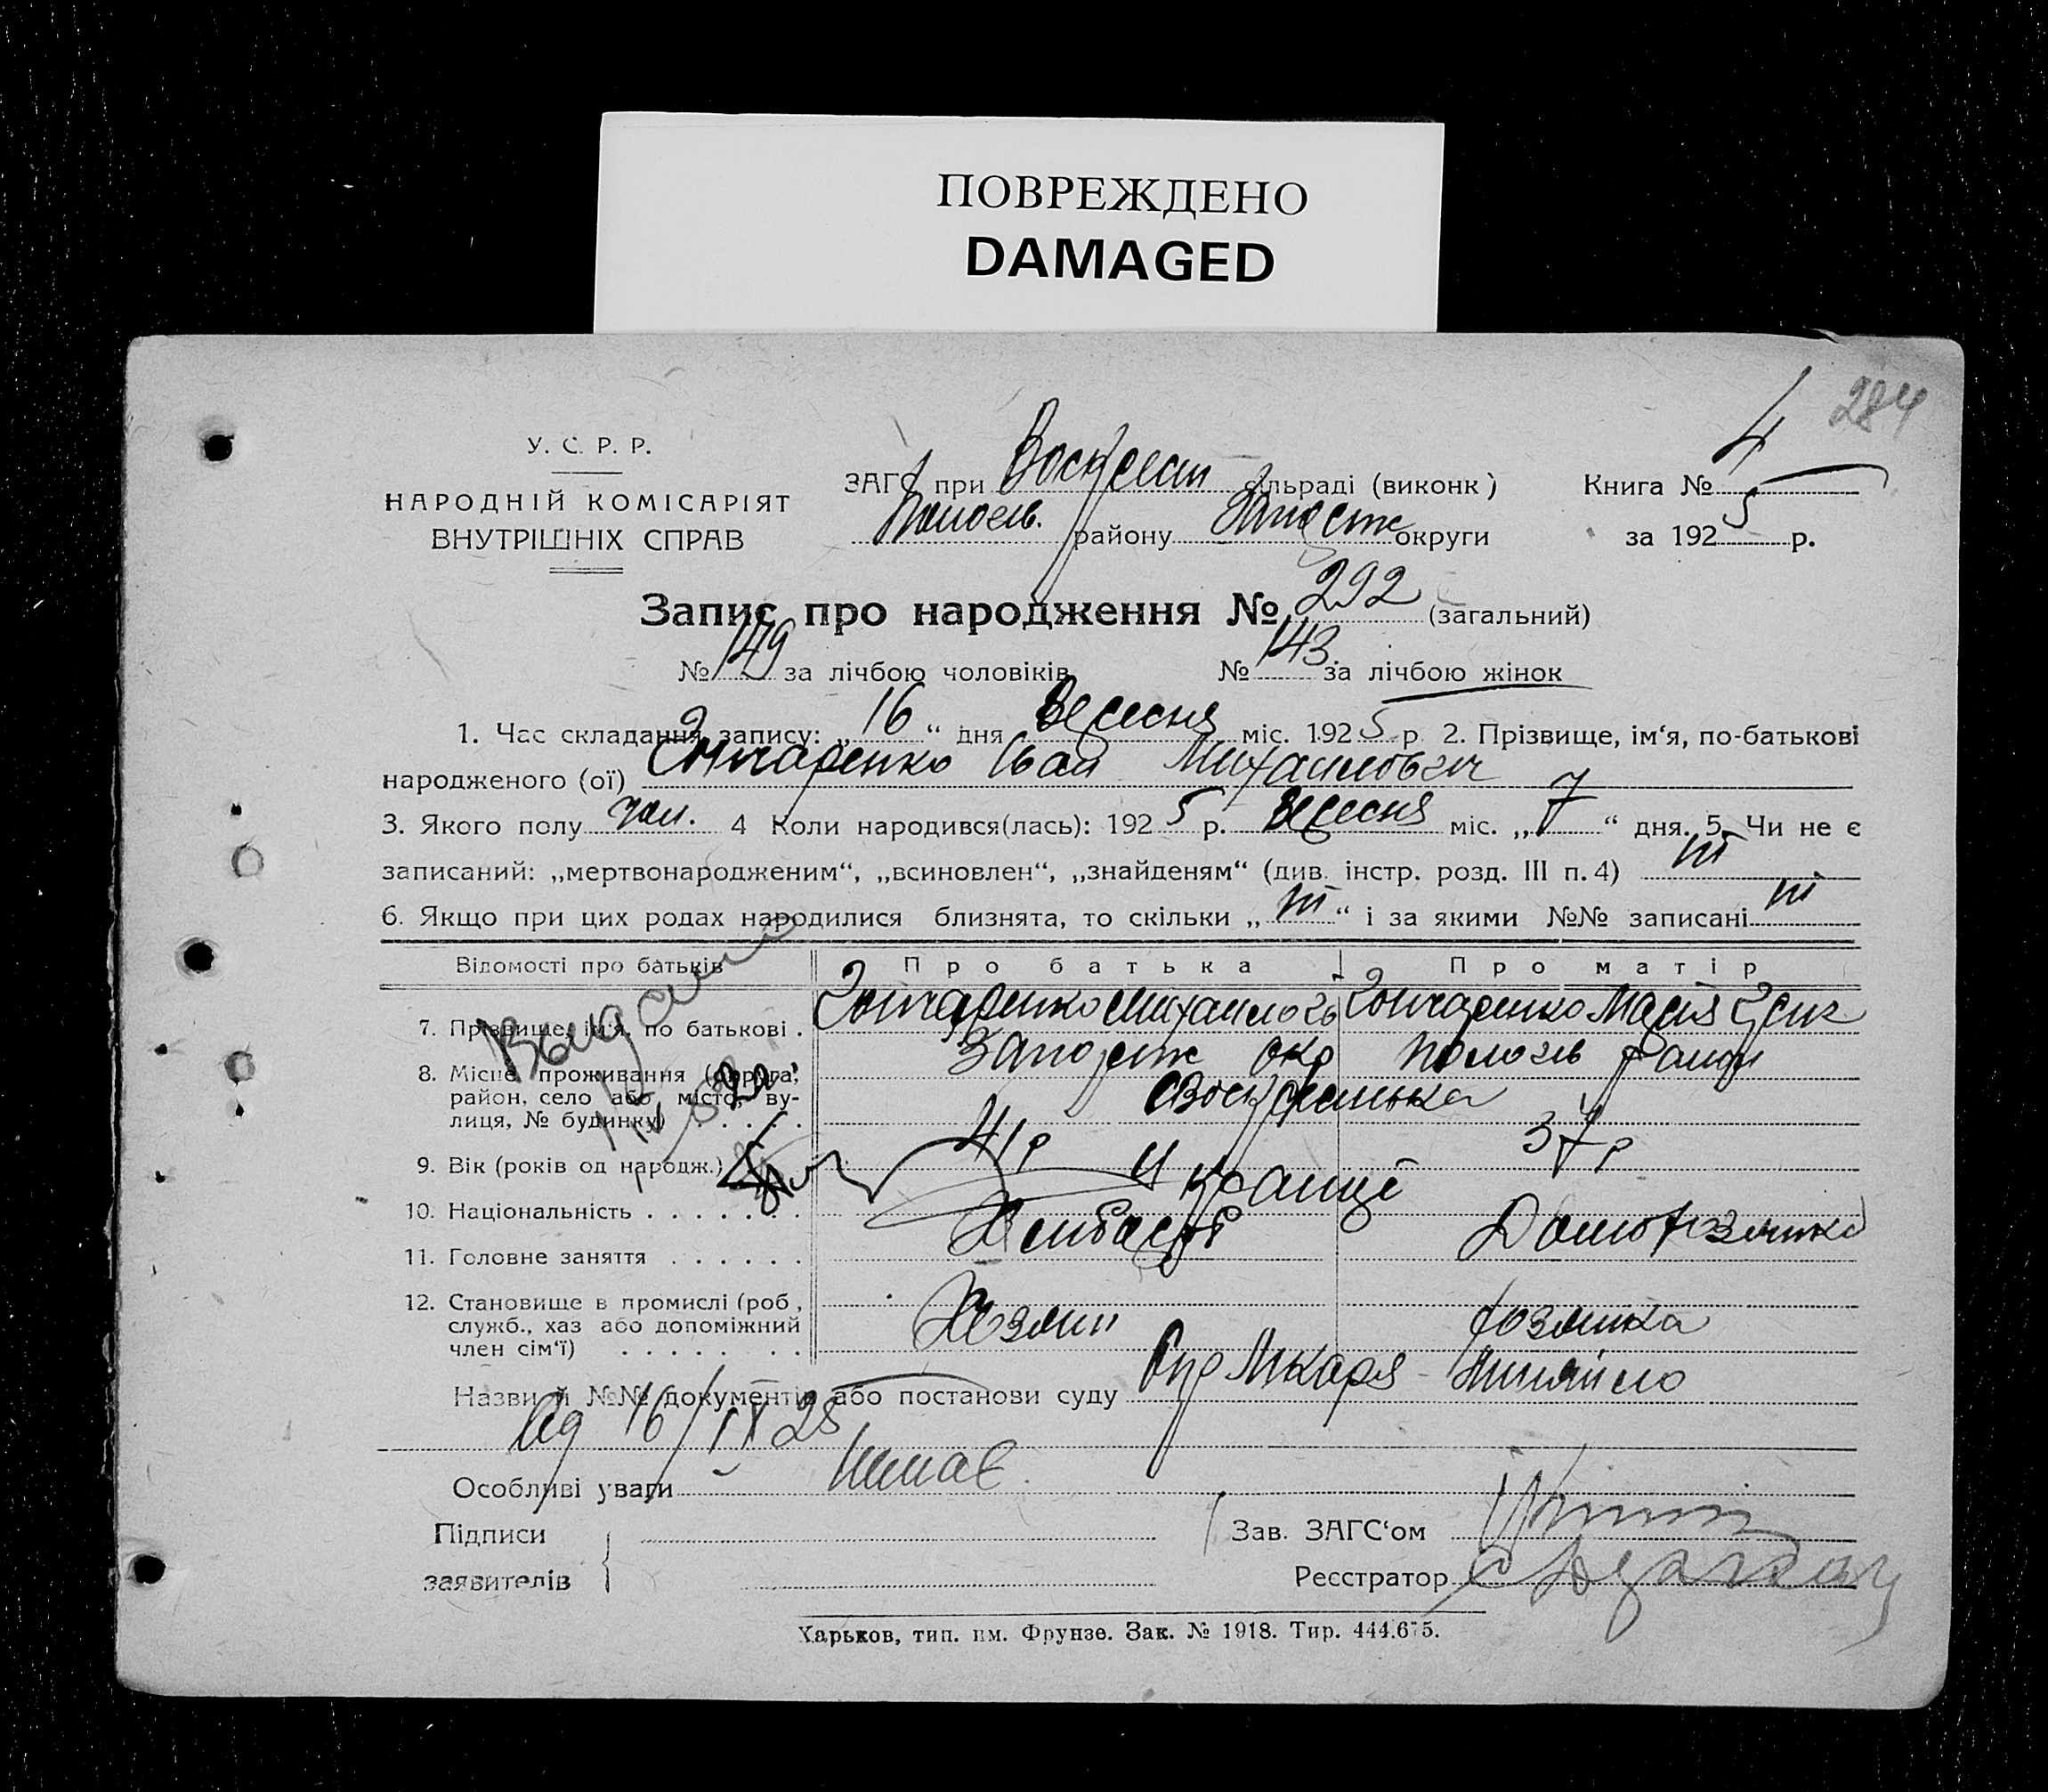 ПОВРЕЖДЕНО
DAMAGED
284
У. С. Р. Р.
НАРОДНІЙ КОМІСАРІЯТ
ВНУТРІШНІХ СПРАВ
ЗАГС при Воскресен сільраді (виконк)
Пологів. району Запоріж округи
Книга № 4
за 1925 р.
Запис про народження № 292 (загальний)
№ 149 за лічбою чоловіків № 143 за лічбою жінок
1. Час складання запису: „16“ дня Вересня міс. 1925 р 2. Прізвище, ім‘я, по-батькові
народженого (ої) Гончаренко Іван Михаилович
3. Якого полу чол. 4 Коли народився(лась): 1925 р. Вересня міс. „7“ дня. 5. Чи не є
записаний: „мертвонародженим“, „всиновлен“, „знайденям“ (див. інстр. розд. III п. 4) ні
6. Якщо при цих родах народилися близнята, то скільки „ні“ і за якими №№ записані ні
Відомості про батьків Про батька Про матір
7. Прізвище, ім‘я, по батькові . Гончаренко Михаило Гончаренко Марія
8. Місце проживання (округа, Запоріж окр Пологів район
район, село або місто, ву- Воскресенька
лиця, № будинку) . . . . .
9. Вік (років од народж.) 41р 37р
10. Національність . . . . . . . Українці
11. Головне заняття . . . . . . Хлібороб Домохазяйка
12. Становище в промислі (роб., Хозяин хозяйка
служб., хаз або допоміжний
член сім‘ї) . . . . . . . .
Назви й №№ документів або постанови суду Лікаря
16/IX 25
Особливі уваги Немає.
Підписи
заявителів
Зав. ЗАГС‘ом
Реєстратор
Харьков, тип. им. Фрунзе. Зак. № 1918. Тир. 444.675.